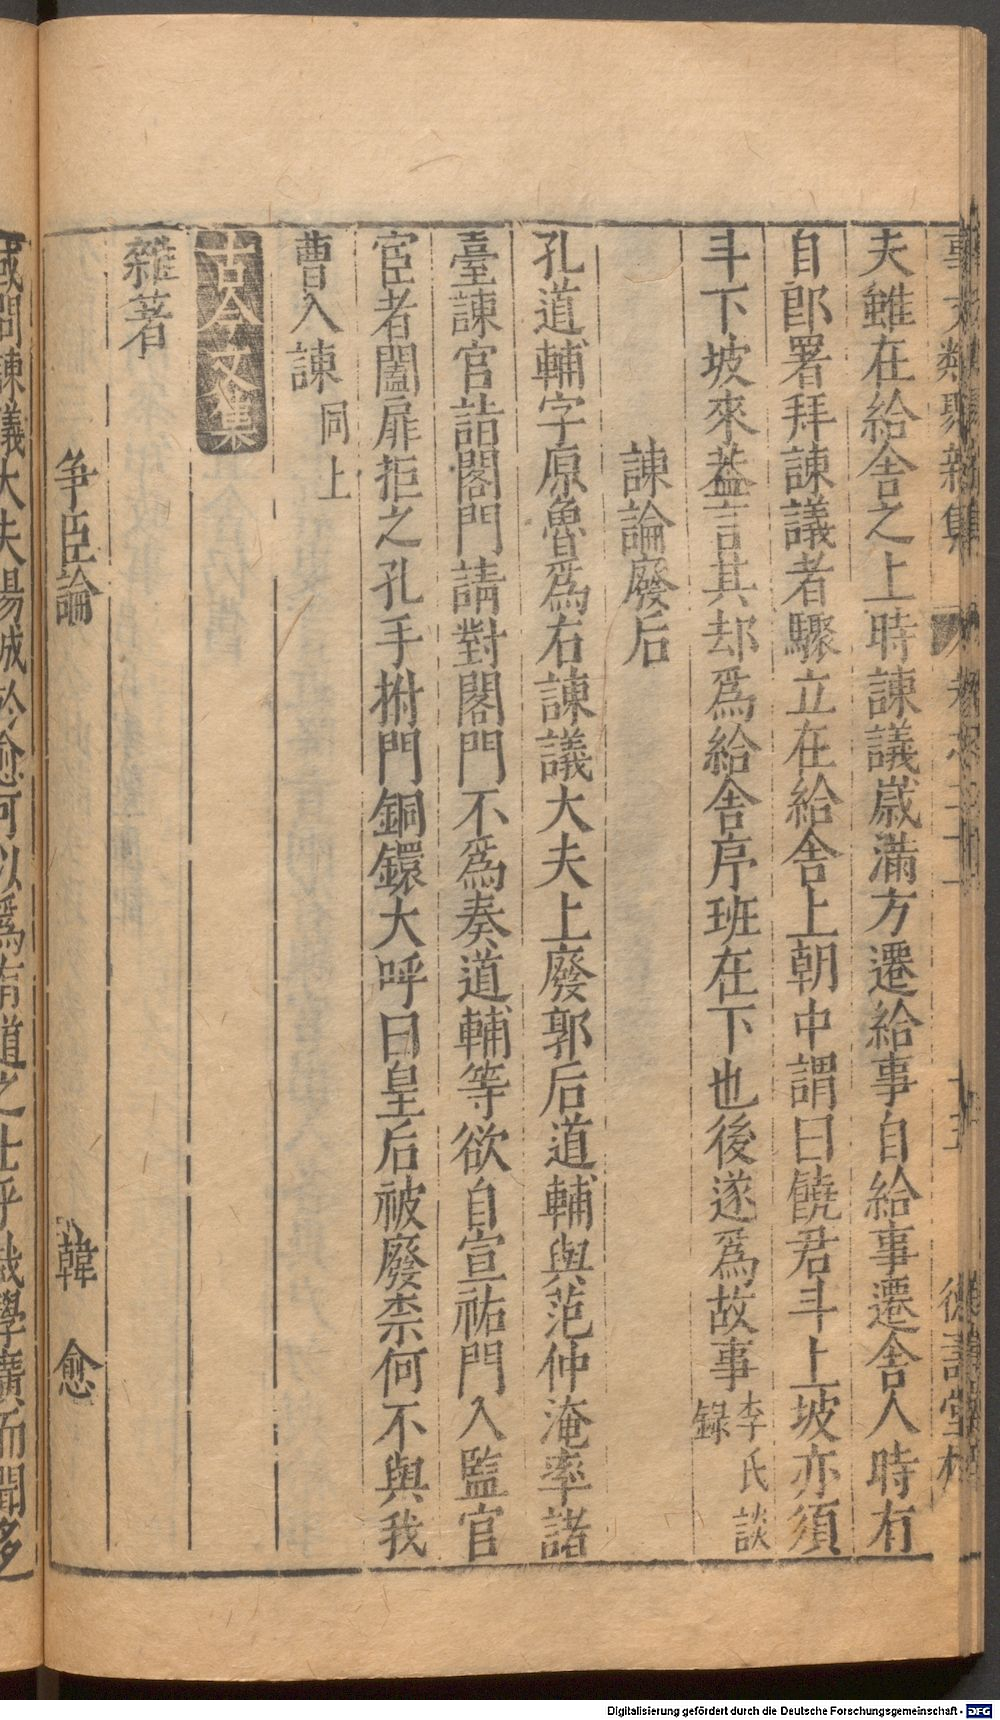 事文類聚新集 卷之二十一 十五 德壽堂梓
夫雖在給舍之上時諫議歲滿方遷給事自給事遷舍人時有
自郎署拜諫議者驟立在給舍上朝中謂曰饒君斗上坡亦須
斗下坡來葢言其却爲給舍序班在下也後遂爲故事李氏談
録
諫論廢后
孔道輔字原魯爲右諫議大夫上廢郭后道輔與范仲淹率諸
臺諫官詣閤門請對閤門不爲奏道輔等欲自宣祐門入監官
宦者闔扉拒之孔手拊門銅鐶大呼曰皇后被廢柰何不與我
曹入諫同上
古今文集
雜著
争臣論 韓愈
或問諫議大夫陽城於愈可以爲有道之士乎哉學廣而聞多
Digitalisierung gefördert durch die Deutsche Forschungsgemeinschaft - DFG